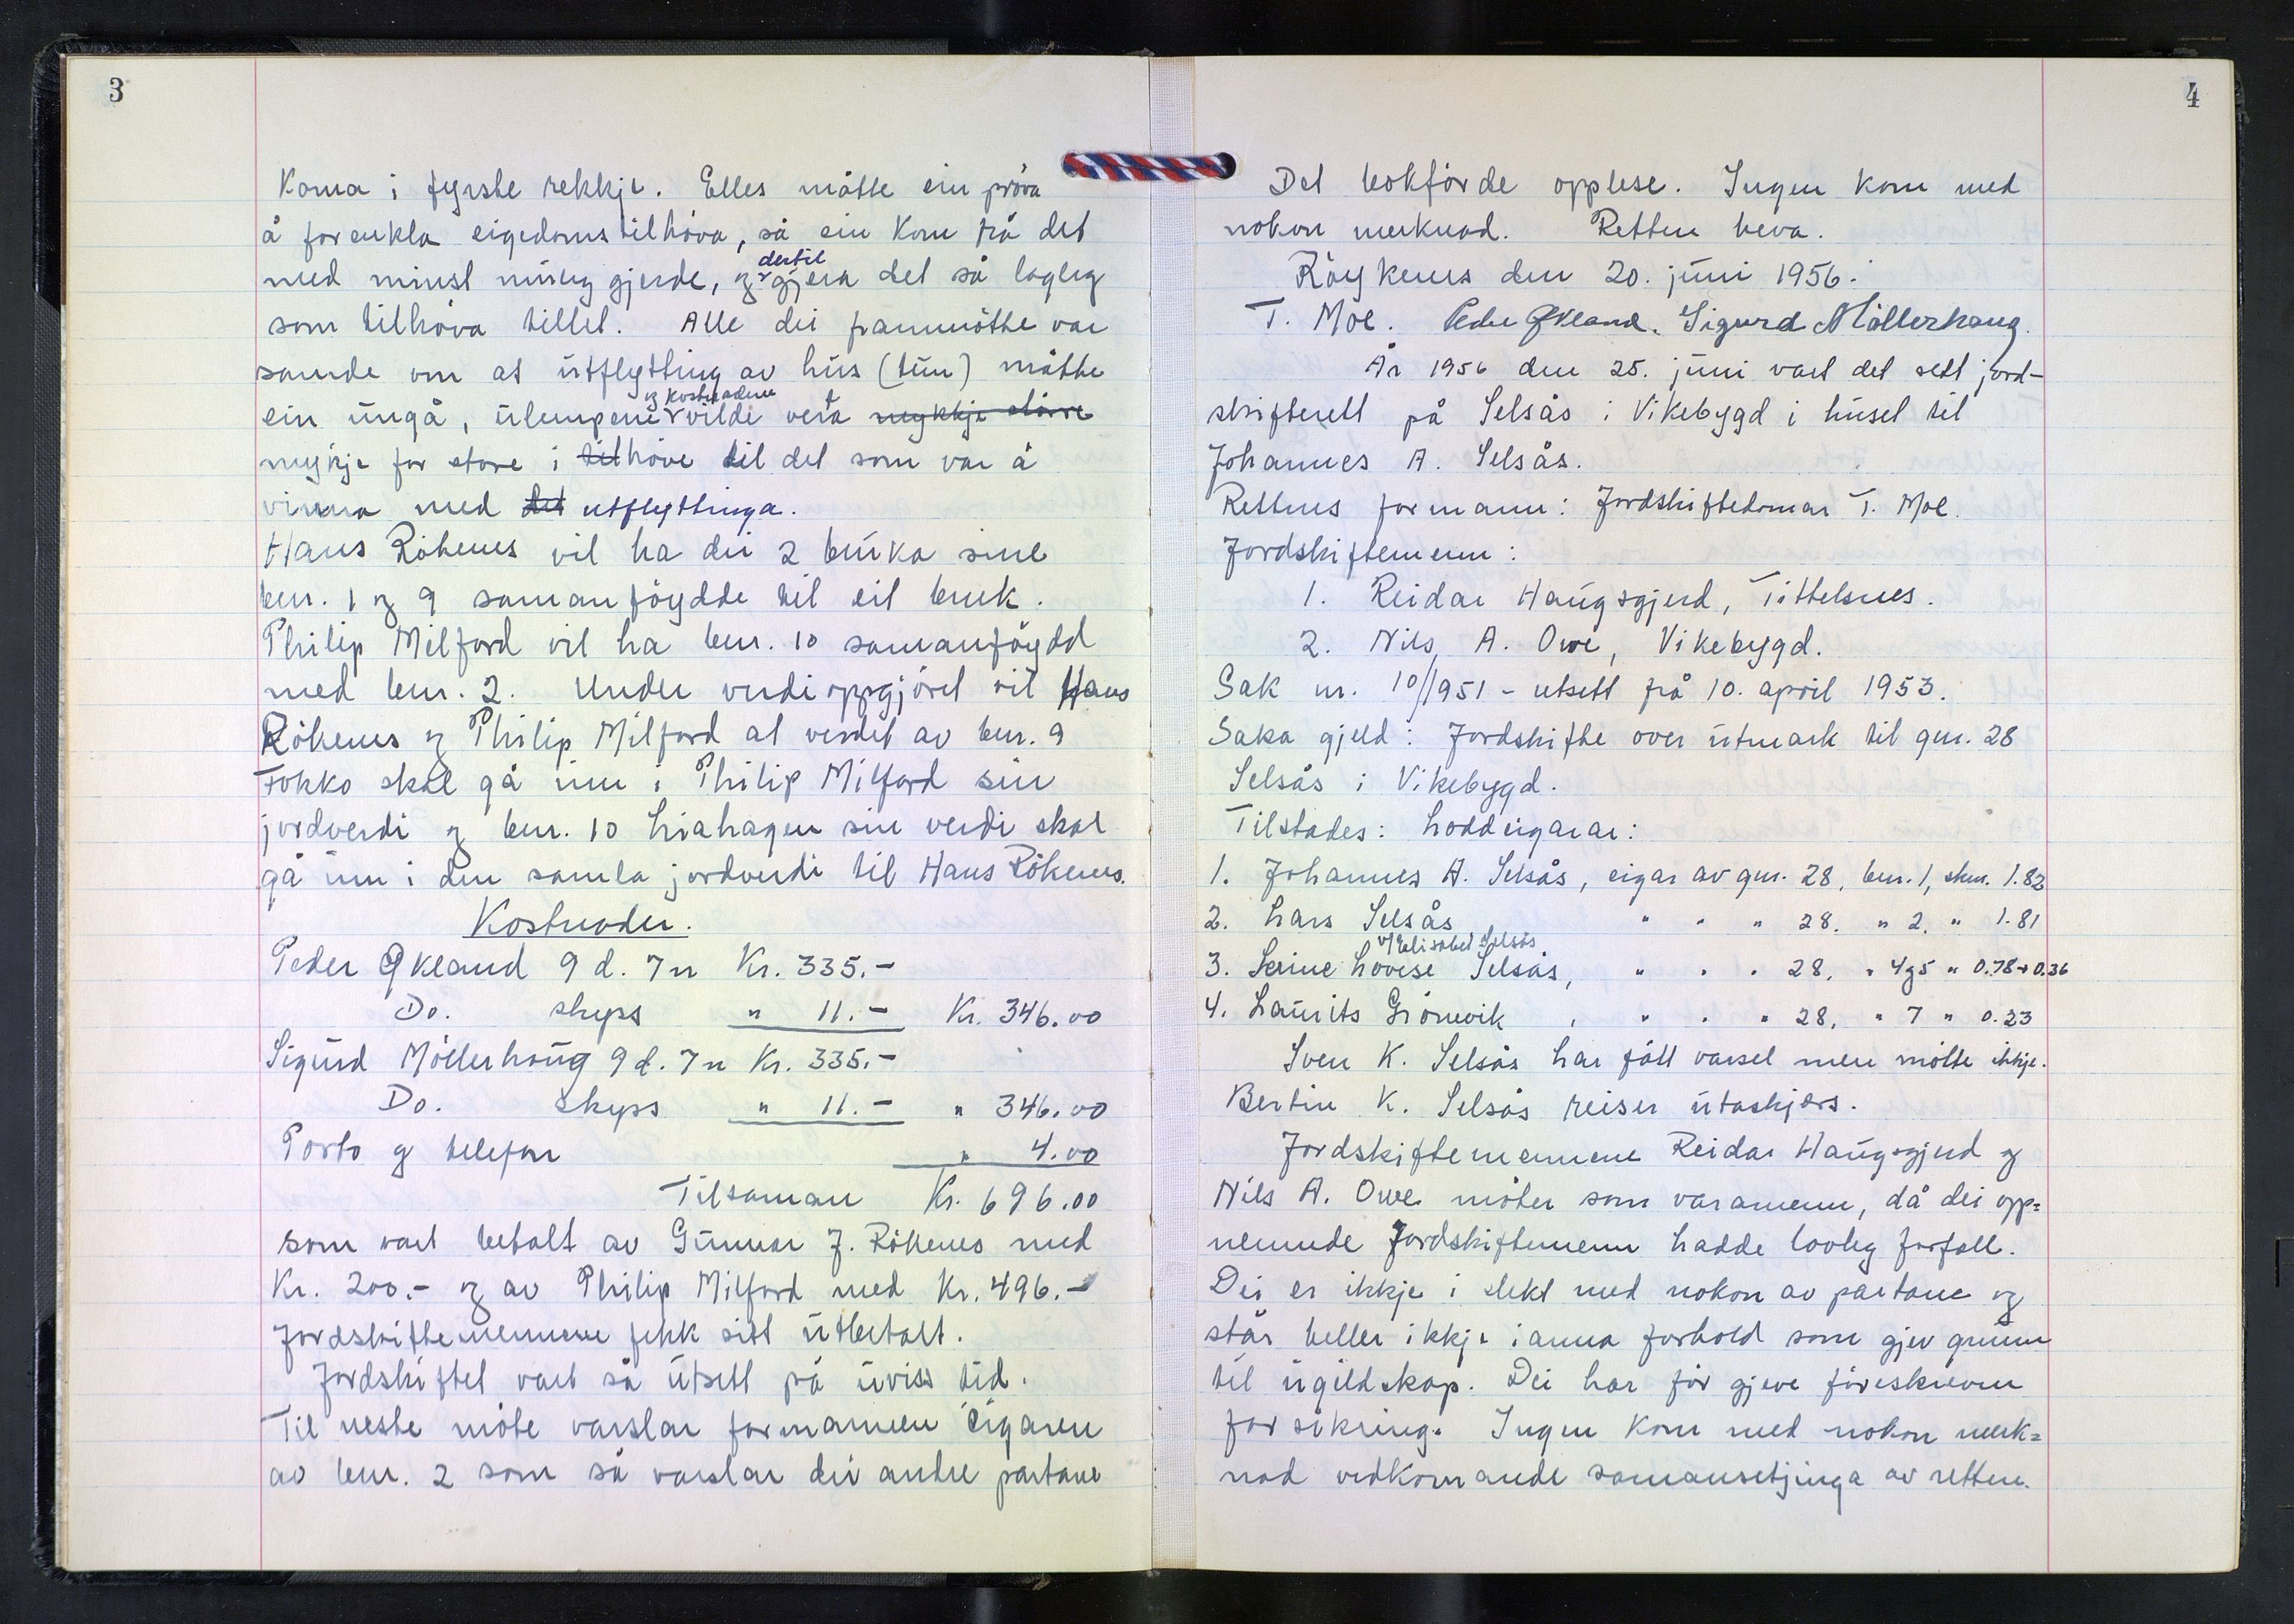 3
Koma i fyrste rekkje. Elles måtte ein pröva
å forenkla eigedomstilhöva, så ein kom frå det
med minst muleg gjerde, og dertil gjera det så lagleg
som tilhöva tillet. Alle dei frammötte var
samde om at utflytting av hus (tun) måtte
ein ungå, ulempene og kostnadene vilde verta mykkje större
mykje for store i tilhöve til det som var å
vinna med det utflyttinga.
Hans Rökenes vil ha dei 2 bruka sine
bnr. 1 og 9 saman föydde til eit bruk.
Philip Milford vil ha bnr. 10 samanföydd
med bnr. 2. Under verdioppgjöret vil Hans
Rökenes og Philip Milford at verdet av bnr. 9
Fokko skal gå inn i Philip Milford sin
jordverdi og bnr. 10 Liahagen sin verdi skal
gå inn i den samla jordverdi til Hans Rökenes.
Kostnader.
Peder Økland 9 d. 7 n Kr. 335.-
Do. skyss " 11.- Kr. 346.00
Sigurd Möllerhaug 9 d. 7 n Kr. 335.-
Do. skyss " 11.- " 346.00
Porto og telefon " 4.00
Tilsaman Kr. 696.00
som vart betalt av Gunnar J. Rökenes med
Kr. 200.- og av Philip Milford med Kr. 496.-
Jordskiftemennene fekk sitt utbetalt.
Jordskiftet vart så utsett på uviss tid.
Til neste möte varslar formannen eigaren
av bnr. 2 som så varslar dei andre partane
4
Det bokförde opplese. Ingen kom med
nokon merknad. Retten heva.
Röykenes den 20. juni 1956.
T. Moe. Peder Økland. Sigurd Möllerhaug.
År 1956 den 25. juni vart det sett jord-
skifterett på Selsås i Vikebygd i huset til
Johannes A. Selsås.
Rettens formann: Jordskiftedomar T. Moe.
Jordskiftemenn:
1. Reidar Haugsgjerd, Tittelsnes.
2. Nils A. Owe, Vikebygd.
Sak nr. 10/1951 - utsett frå 10. april 1953.
Saka gjeld: Jordskifte over utmark til gnr. 28
Selsås i Vikebygd.
Tilstades: Loddeigarar:
1. Johannes A. Selsås, eigar av gnr. 28, bnr. 1, skm. 1.82
2. Lars Selsås " " " 28. " 2. " 1.81
3. Serine Lovise v/ Elisabet Selsås Selsås, " " " 28. " 4 og 5 " 0.78+0.36
4. Laurits Grönevik, " " " 28. " 7 " 0.23
Sven K. Selsås har fått varsel men mötte ikkje.
Bertin K. Selsås reiser utaskjærs.
Jordskiftemennene Reidar Haugsgjerd og
Nils A. Owe möter som varamenn, då dei opp=
nemnde Jordskiftemenn hadde lovleg forfall.
Dei er ikkje i slekt med nokon av partane og
står heller ikkje i anna forhold som gjev grunn
til ugildskap. Dei har för gjeve föreskreven
forsikring. Ingen kom med nokon merk=
nad vedkomande samansetjinga av retten.